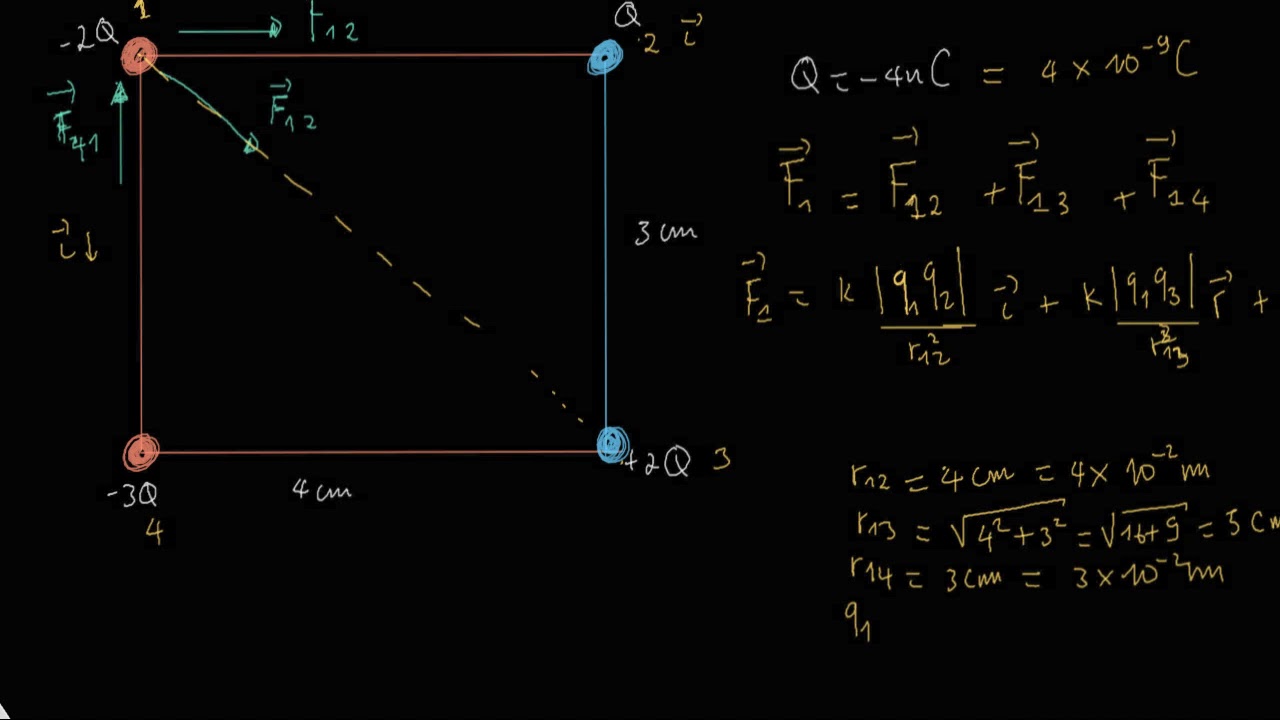 1
-2Q
F₁₂
Q
2 i⃗
F⃗₄₁
F⃗₁₂
i⃗ ↓
3 cm
-3Q
4
4 cm
+2Q 3
Q = -4nC = 4 × 10⁻⁹C
F⃗₁ = F⃗₁₂ + F⃗₁₃ + F⃗₁₄
F⃗₁ = k |q₁q₂| / r₁₂² i⃗ + k |q₁q₃| / r₁₃² r⃗ +
r₁₂ = 4 cm = 4 × 10⁻² m
r₁₃ = √(4² + 3²) = √(16+9) = 5 cm
r₁₄ = 3 cm = 3 × 10⁻² m
q₁